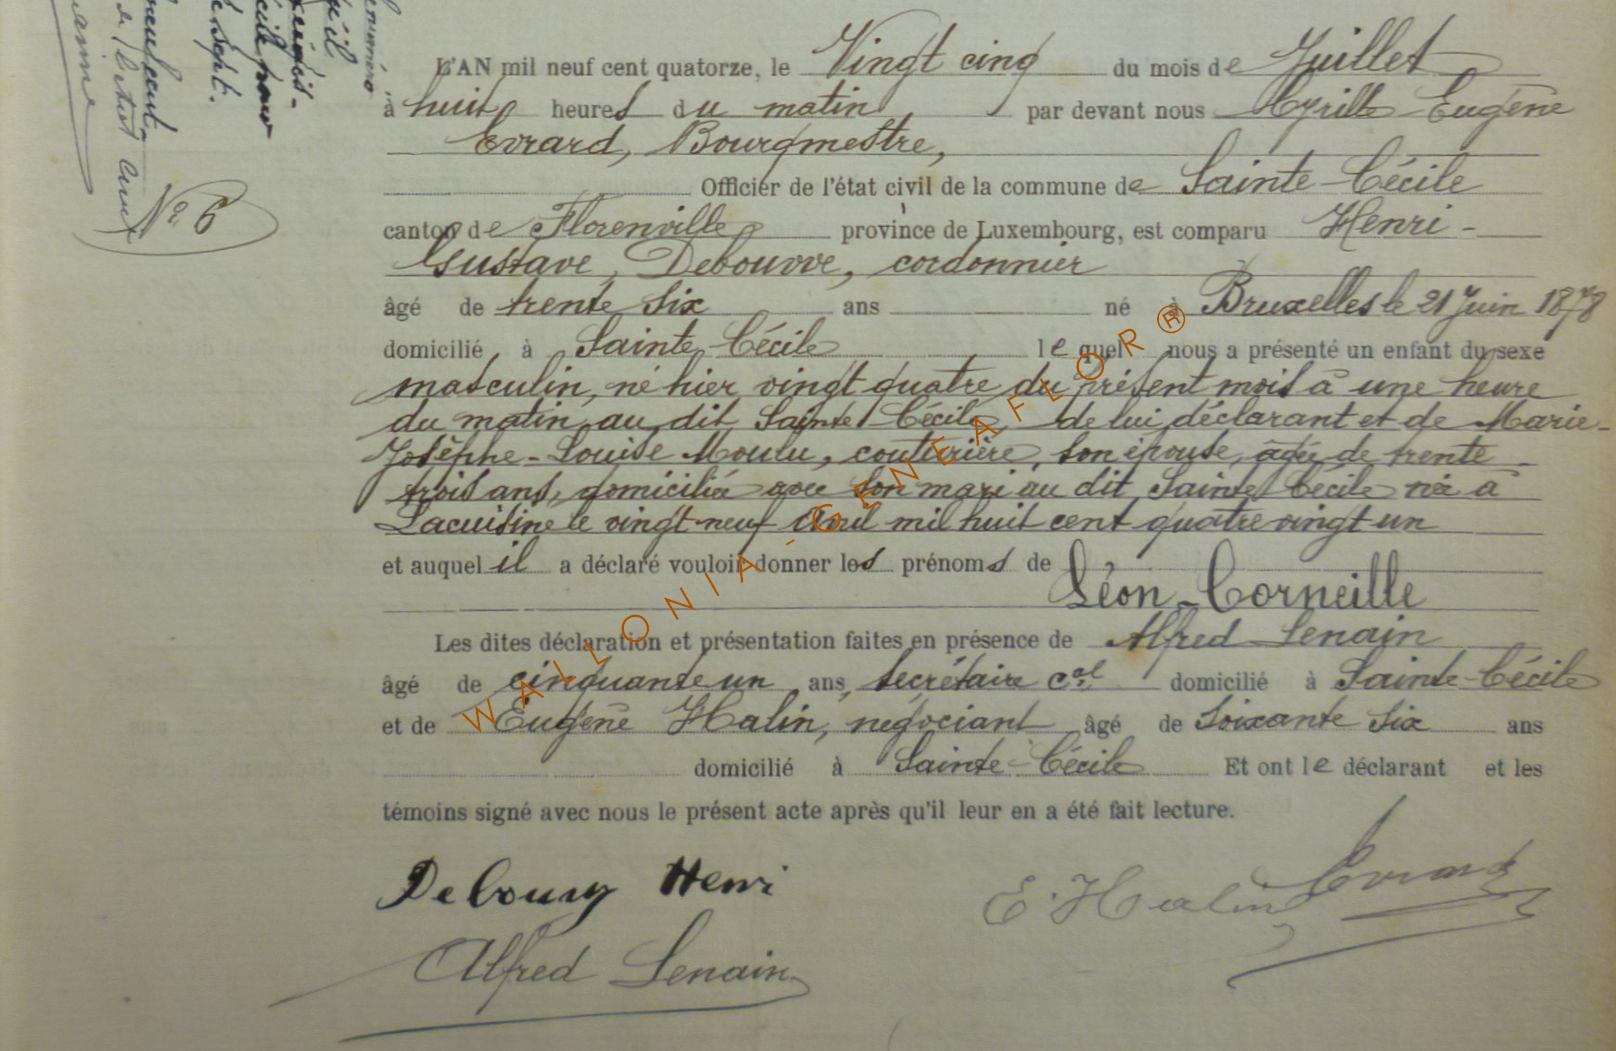 N° 6
L'AN mil neuf cent quatorze, le Vingt cinq du mois de Juillet
à huit heures du matin par devant nous Cyrille Eugène
Evrard, Bourgmestre,
Officier de l'état civil de la commune de Sainte-Cécile
canton de Florenville province de Luxembourg, est comparu Henri-
Gustave, Debouvre, cordonnier
âgé de trente six ans né à Bruxelles le 21 Juin 1878
domicilié à Sainte Cécile lequel nous a présenté un enfant du sexe
masculin, né hier vingt quatre du présent mois à une heure
du matin, au dit Sainte Cécile de lui déclarant et de Marie-
Josèphe-Louise Moulu, couturière, son épouse, âgée de trente
trois ans, domiciliée avec son mari au dit Sainte Cécile née à
Lacuisine le vingt neuf avril mil huit cent quatre vingt un
et auquel il a déclaré vouloir donner les prénoms de
Léon-Corneille
Les dites déclaration et présentation faites en présence de Alfred Lenain
âgé de cinquante un ans, secrétaire cal domicilié à Sainte-Cécile
et de Eugène Halin, négociant âgé de soixante six ans
domicilié à Sainte-Cécile Et ont le déclarant et les
témoins signé avec nous le présent acte après qu'il leur en a été fait lecture.
Henri
E. Halin Evrard
Alfred Lenain
WALLONIA-GENEAFLOR®